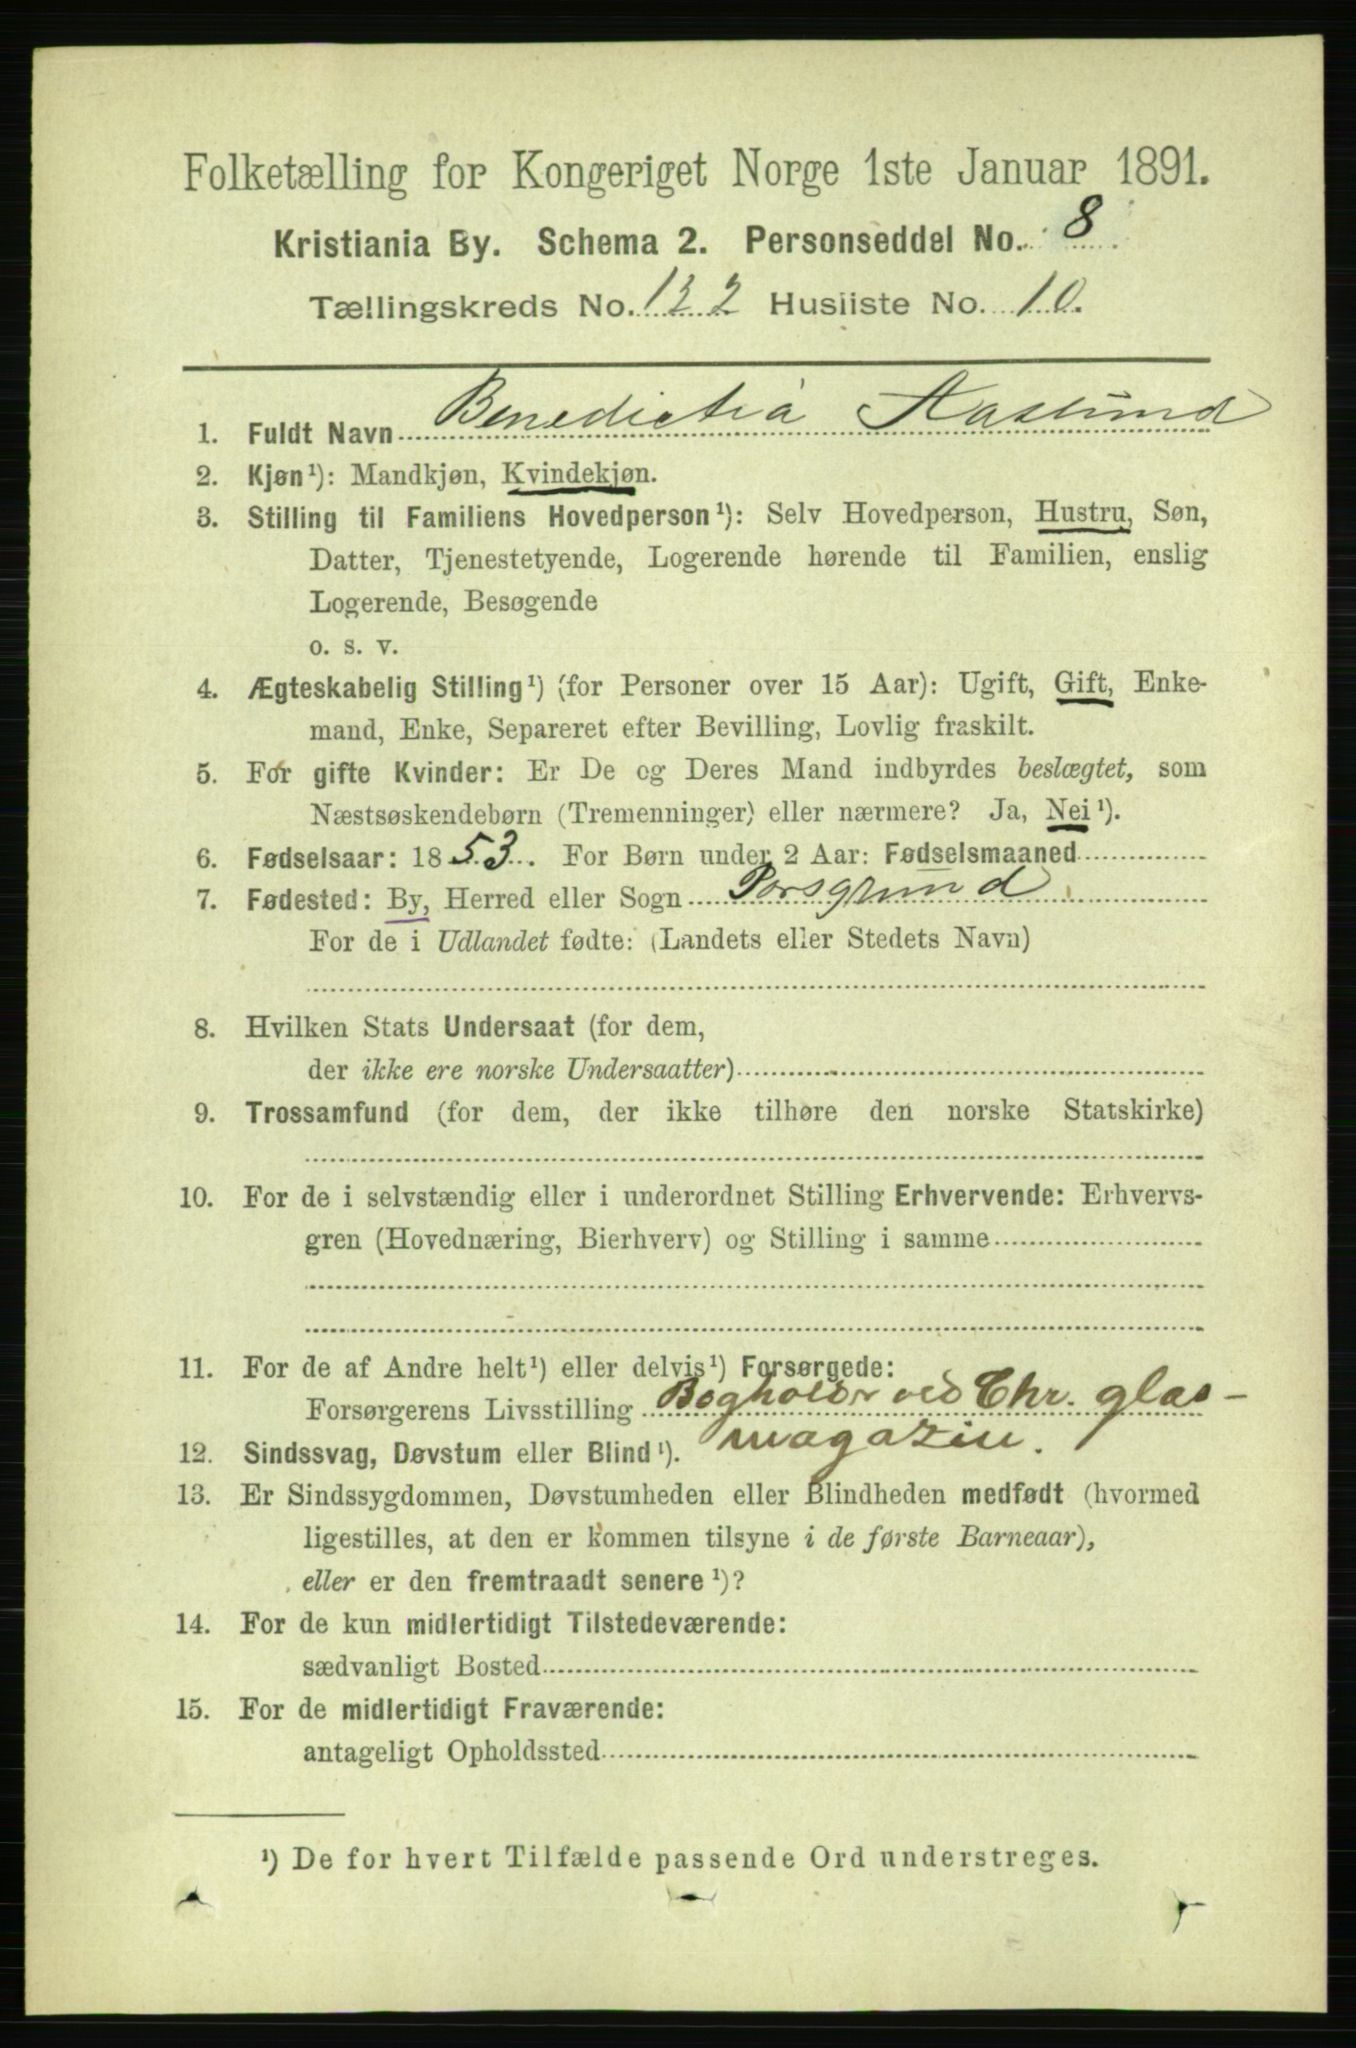 Folketælling for Kongeriget Norge 1ste Januar 1891.
Kristiania By. Schema 2. Personseddel No. 8
Tællingskreds No. 132 Husliste No. 10.
1. Fuldt Navn Benedictia Aaslund
2. Kjøn¹): Mandkjøn, Kvindekjøn.
3. Stilling til Familiens Hovedperson¹): Selv Hovedperson, Hustru, Søn,
Datter, Tjenestetyende, Logerende hørende til Familien, enslig
Logerende, Besøgende
o. s. v.
4. Ægteskabelig Stilling¹) (for Personer over 15 Aar): Ugift, Gift, Enke-
mand, Enke, Separeret efter Bevilling, Lovlig fraskilt.
5. For gifte Kvinder: Er De og Deres Mand indbyrdes beslægtet, som
Næstsøskendebørn (Tremenninger) eller nærmere? Ja, Nei¹).
6. Fødselsaar: 1853. For Børn under 2 Aar: Fødselsmaaned
7. Fødested: By, Herred eller Sogn Porsgrund
For de i Udlandet fødte: (Landets eller Stedets Navn)
8. Hvilken Stats Undersaat (for dem,
der ikke ere norske Undersaatter)
9. Trossamfund (for dem, der ikke tilhøre den norske Statskirke)
10. For de i selvstændig eller i underordnet Stilling Erhvervende: Erhvervs-
gren (Hovednæring, Bierhverv) og Stilling i samme
11. For de af Andre helt¹) eller delvis¹) Forsørgede:
Forsørgerens Livsstilling Bogholder ved Chr. glas-
magazin.
12. Sindssvag, Døvstum eller Blind¹).
13. Er Sindssygdommen, Døvstumheden eller Blindheden medfødt (hvormed
ligestilles, at den er kommen tilsyne i de første Barneaar),
eller er den fremtraadt senere¹)?
14. For de kun midlertidigt Tilstedeværende:
sædvanligt Bosted
15. For de midlertidigt Fraværende:
antageligt Opholdssted
¹) De for hvert Tilfælde passende Ord understreges.